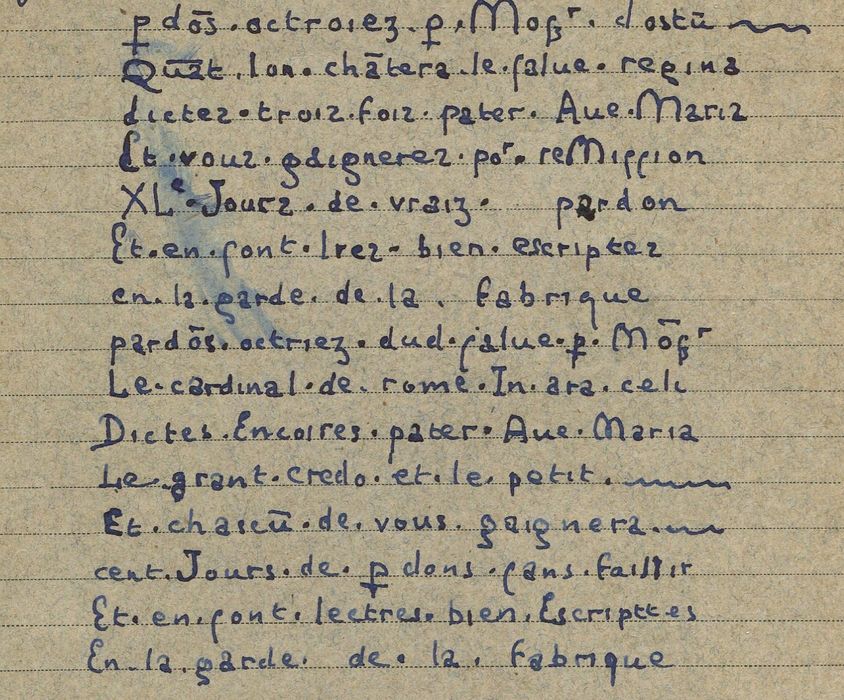 ꝑ dōs . octroiez . ꝑ . Moꝰſr . dostū
Quāt . lon . chātera . le . ſalue . regina
dictez . troiz . foiz . pater . Aue . Maria
Et . vouz . gaignerez . por . reMiſſion
XLe . Jourz . de . vraiz . pardon
Et . en . ſont . lrez . bien . escriptez
en . la . garde . de . la . fabrique
pardōs . octriez . dud . ſalue . ꝑ . Mōſr
Le . cardinal . de . rome . In . ara . celi
Dictes . Encoires . pater . Aue . Maria
Le . grant . Credo . et . le . petit .
Et . chascū . de . vous . gaignera .
cent . Jours . de . ꝑ dons . ſans . faillir
Et . en . ſont . lectres . bien . Escriptes
En . la . garde . de . la . fabrique